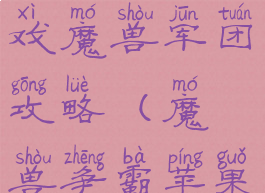 xì mó shòu jūn tuán
戏魔兽军团
gōng lüè mó
攻略（魔
shòu zhēng bà píng guǒ
兽争霸苹果